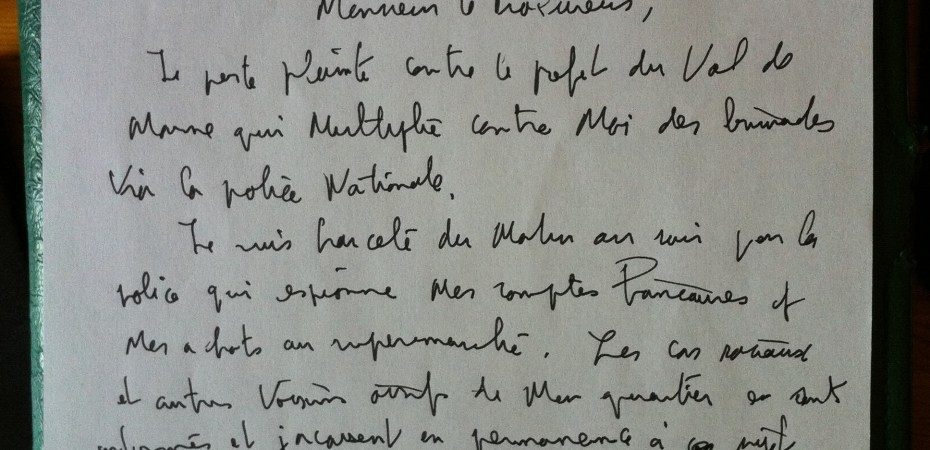 Monsieur le Procureur,
Je porte plainte contre le préfet du Val de
Marne qui Multiplie contre Moi des brimades
Via la police Nationale.
Je suis harcelé du Matin au soir par la
police qui espionne Mes comptes Bancaires et
Mes achats au supermarché. Les cas sociaux
et autres Voisins de Mon quartier en sont
informés et jacassent en permanence à ce sujet